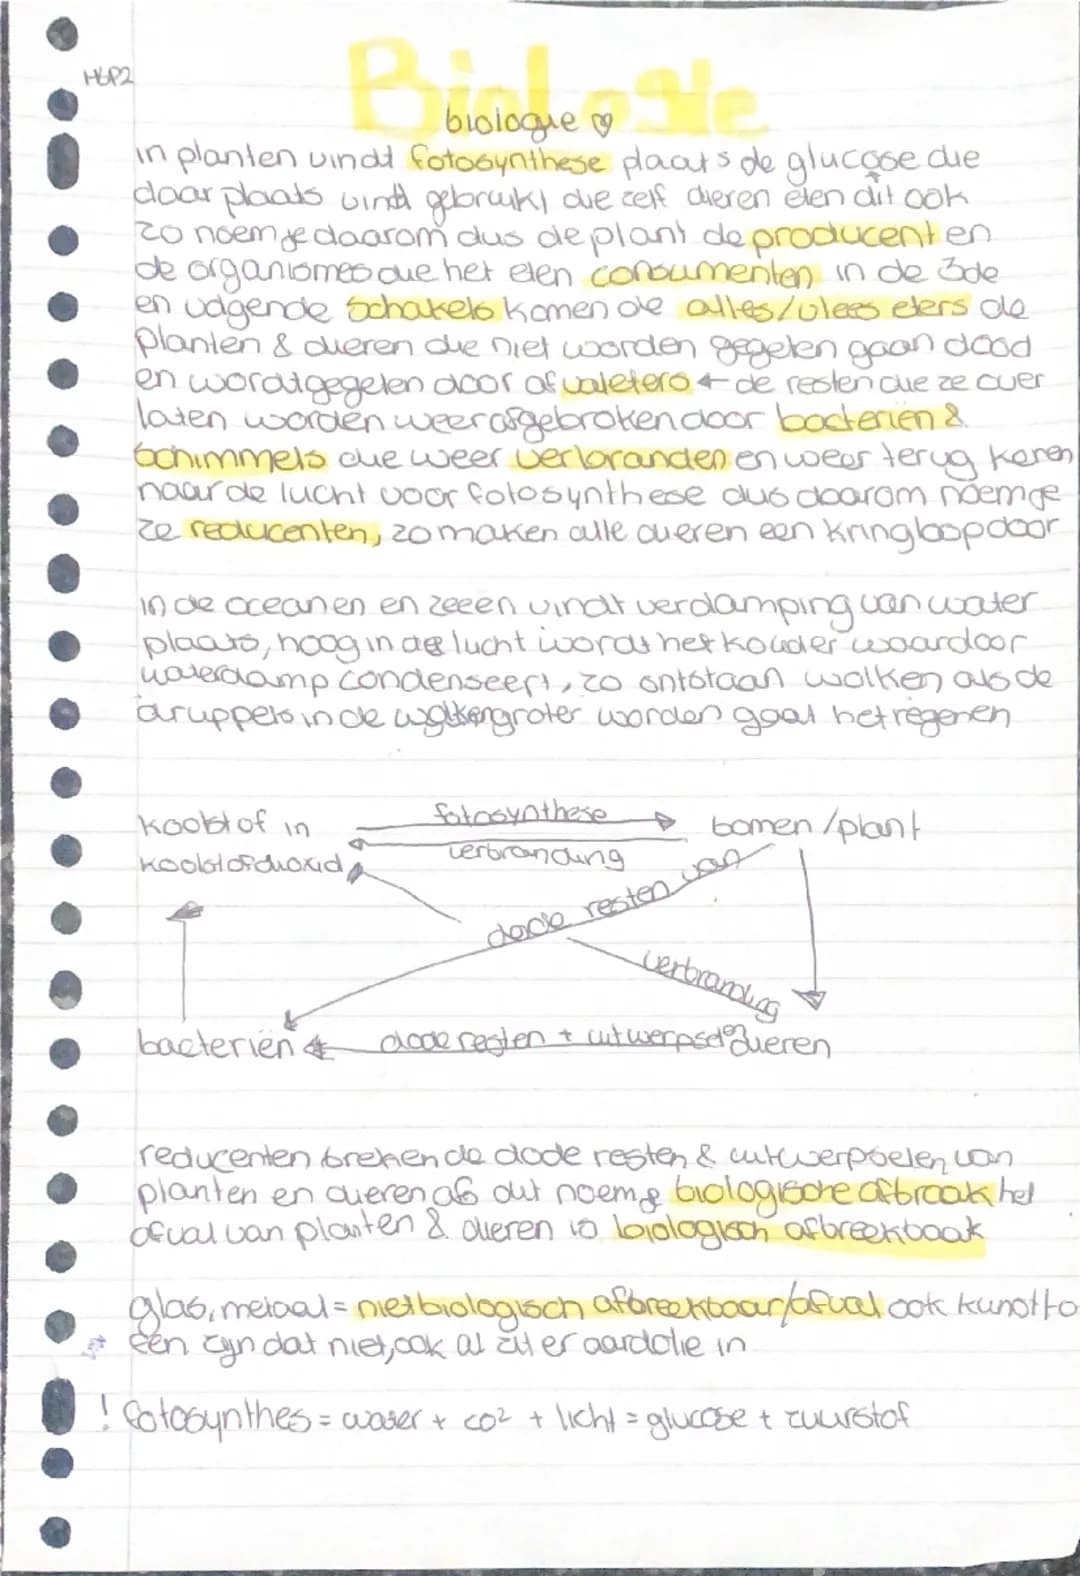 H6P2
Biologie
biologie ♡
in planten vindt fotosynthese plaats de glucose die
daar plaats vindt gebruikt die zelf dieren eten dit ook
zo noem je daarom dus de plant de producent en
de organismes die het eten consumenten in de 3de
en volgende schakels komen de alles/vlees eters de
planten & dieren die niet worden gegeten gaan dood
en wordt gegeten door afvaleters ← de resten die ze over
laten worden weer afgebroken door bacteriën &
schimmels die weer verbranden en weer terug keren
naar de lucht voor fotosynthese dus daarom noem je
ze reducenten, zo maken alle dieren een kringloop door
in de oceanen en zeeën vindt verdamping van water
plaats, hoog in de lucht wordt het kouder waardoor
waterdamp condenseert, zo ontstaan wolken als de
druppels in de wolken groter worden gaat het regenen
fotosynthese
koolstof in bomen/plant
verbranding
koolstofdioxid
dode resten van
verbranding
bacteriën dode resten + uitwerpselen dieren
reducenten breken de dode resten & uitwerpselen van
planten en dieren af dit noem je biologische afbraak het
afval van planten & dieren is biologisch afbreekbaak
glas, metaal = niet biologisch afbreekbaar/afval ook kunstto
een zijn dat niet, ook al zit er aardolie in
! fotosynthes = water + co² + licht = glucose + zuurstof